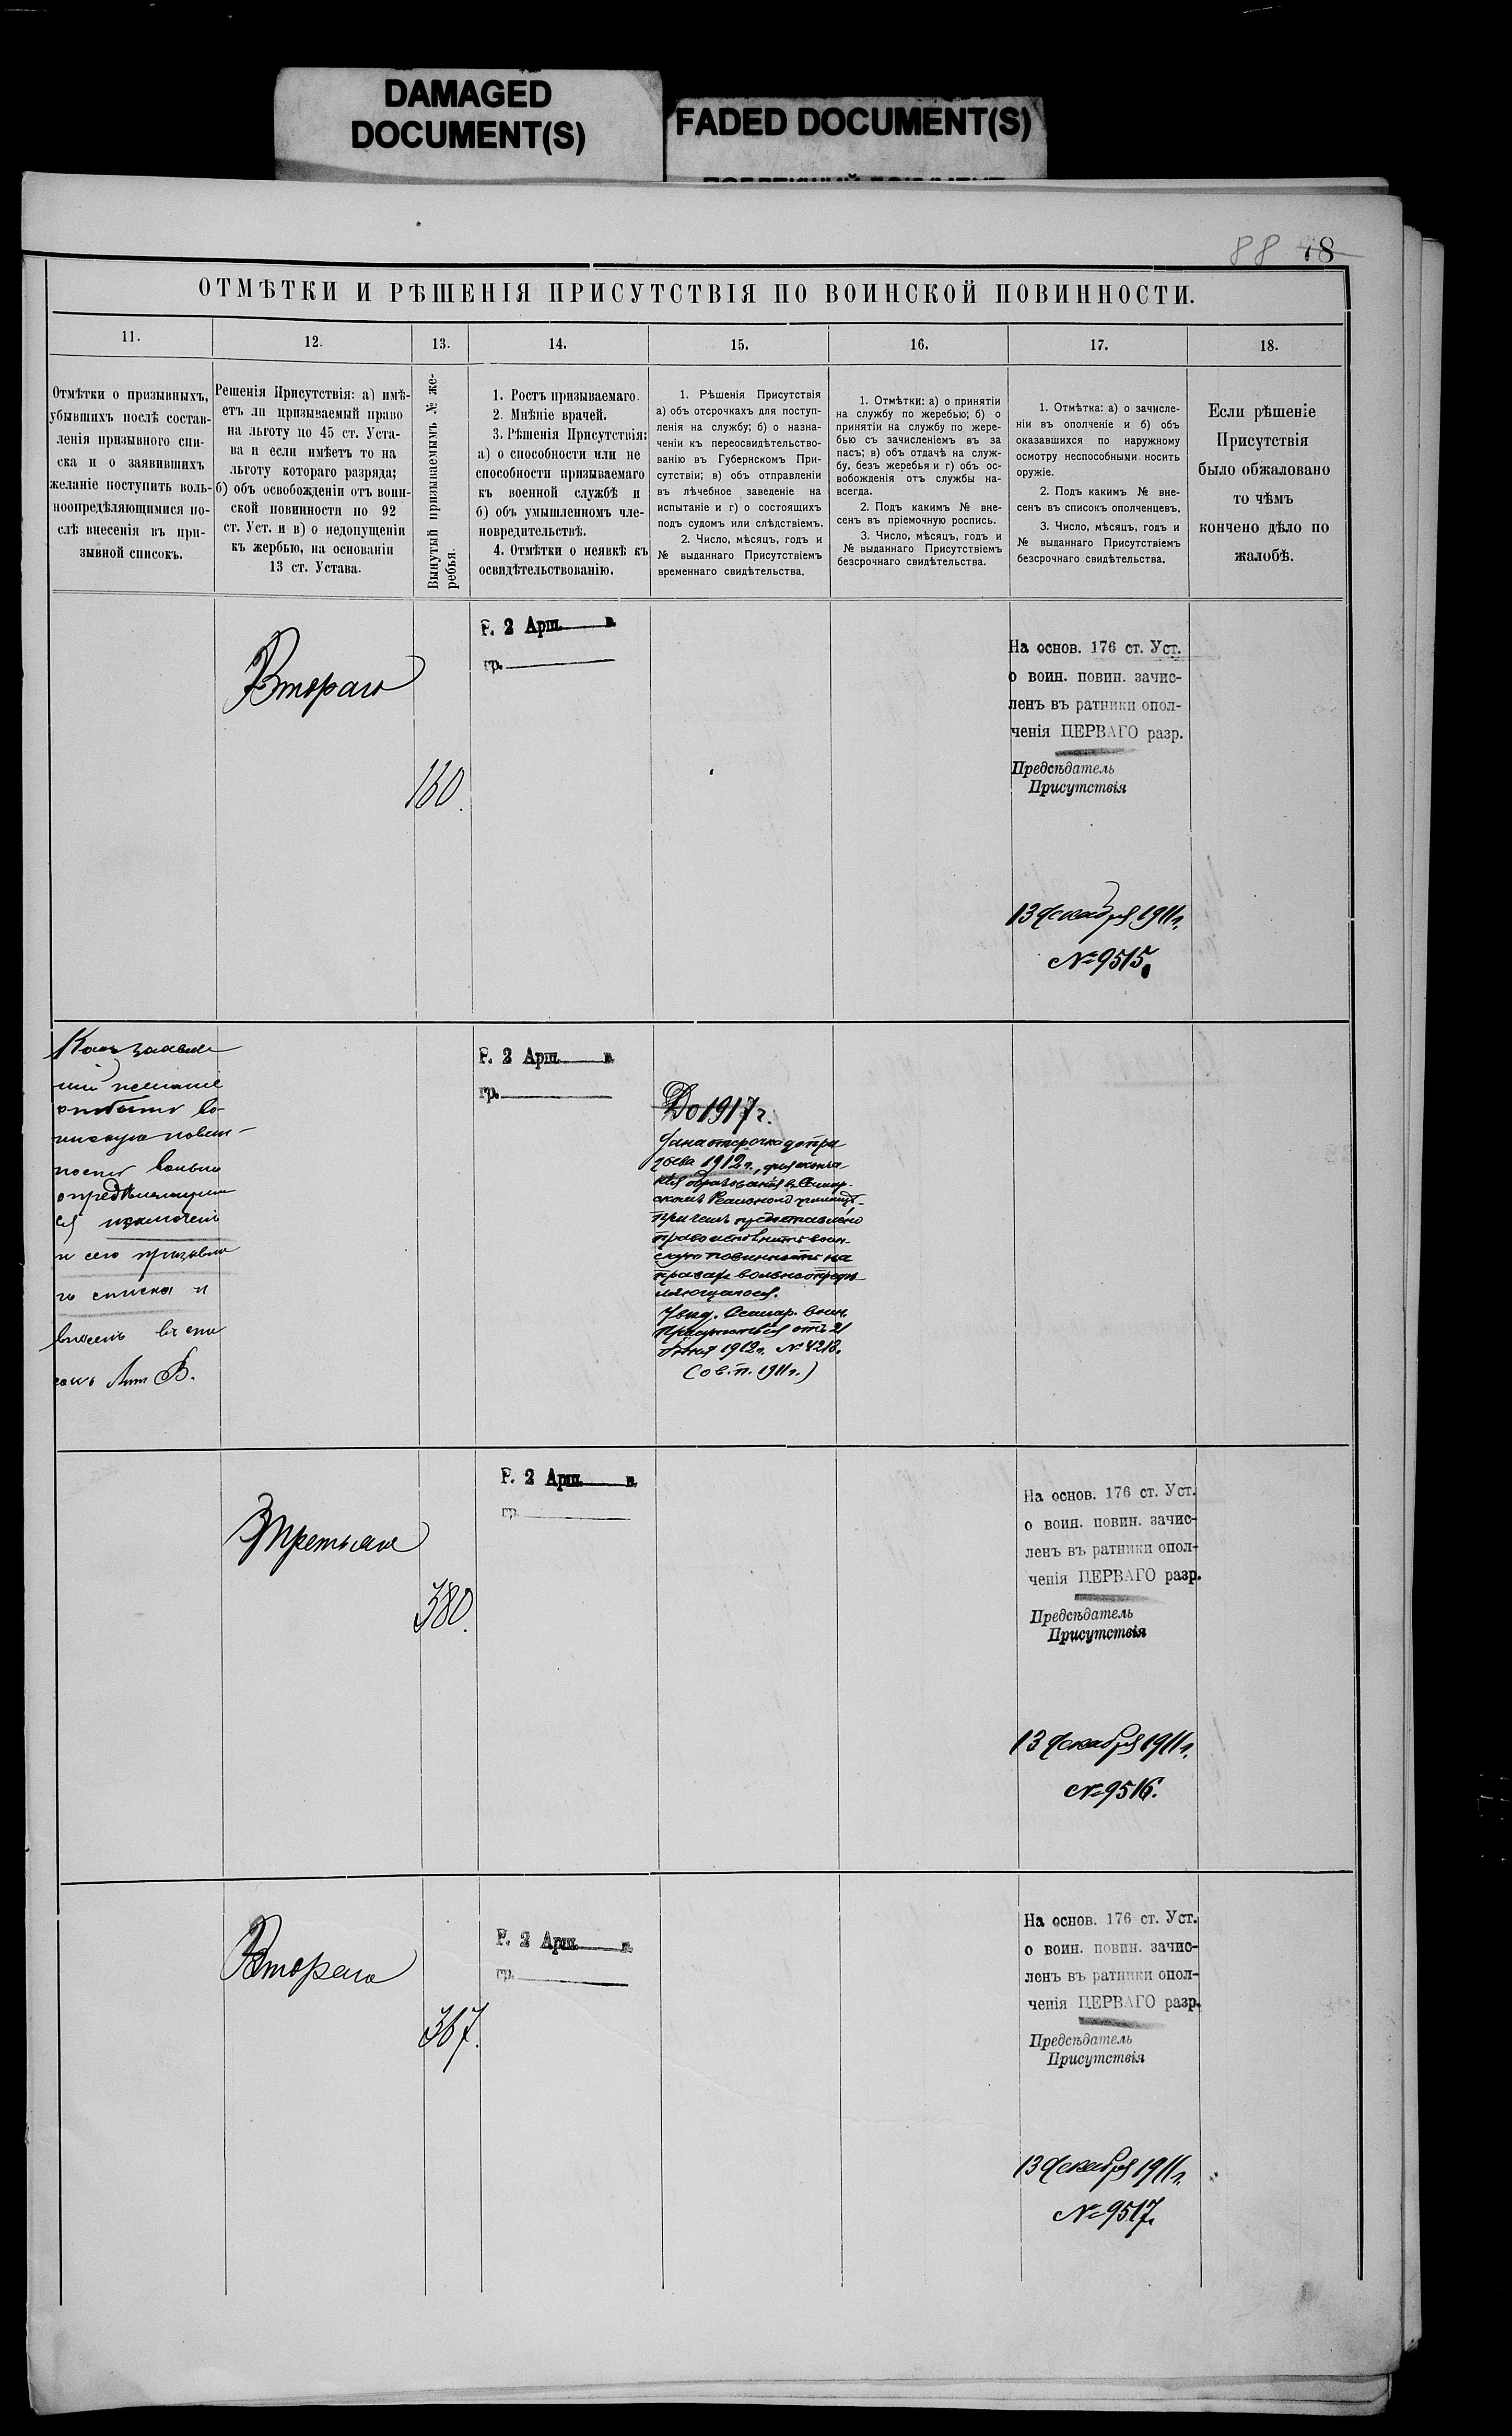 DAMAGED
DOCUMENT(S)
FADED DOCUMENT(S)
88 78
ОТМѢТКИ И РѢШЕНІЯ ПРИСУТСТВІЯ ПО ВОИНСКОЙ ПОВИННОСТИ.
11.
12.
13.
14.
15.
16.
17.
18.
Отмѣтки о призывныхъ,
убывшихъ послѣ состав-
ленія призывного спи-
ска и о заявившихъ
желаніе поступить воль-
ноопредѣляющимися по-
слѣ внесенія въ при-
зывной списокъ.
Решенія Присутствія: а) имѣ-
етъ ли призываемый право
на льготу по 45 ст. Уста-
ва и если имѣетъ то на
льготу котораго разряда;
б) объ освобожденіи отъ воин-
ской повинности по 92
ст. Уст. и в) о недопущеніи
къ жербью, на основаніи
13 ст. Устава.
Вынутый призываемымъ № же-
ребья.
1. Ростъ призываемаго.
2. Мнѣніе врачей.
3. Рѣшенія Присутствія:
а) о способности или не
способности призываемаго
къ военной службѣ и
б) объ умышленномъ чле-
новредительствѣ.
4. Отмѣтки о неявкѣ къ
освидѣтельствованію.
1. Рѣшенія Присутствія
а) объ отсрочкахъ для поступ-
ленія на службу; б) о назна-
ченіи къ переосвидѣтельство-
ванію въ Губернскомъ При-
сутствіи; в) объ отправленіи
въ лѣчебное заведеніе на
испытаніе и г) о состоящихъ
подъ судомъ или слѣдствіемъ.
2. Число, мѣсяцъ, годъ и
№ выданнаго Присутствіемъ
временнаго свидѣтельства.
1. Отмѣтки: а) о принятіи
на службу по жеребью; б) о
принятіи на службу по жере-
бью съ зачисленіемъ въ за
пасъ; в) объ отдачѣ на служ-
бу, безъ жеребья и г) объ ос-
вобожденія отъ службы на-
всегда.
2. Подъ какимъ № вне-
сенъ въ пріемочную роспись.
3. Число, мѣсяцъ, годъ и
№ выданнаго Присутствіемъ
безсрочнаго свидѣтельства.
1. Отмѣтка: а) о зачисле-
ніи въ ополченіе и б) объ
оказавшихся по наружному
осмотру неспособными носить
оружіе.
2. Подъ какимъ № вне-
сенъ въ списокъ ополченцевъ.
3. Число, мѣсяцъ, годъ и
№ выданнаго Присутствіемъ
безсрочнаго свидѣтельства.
Если рѣшеніе
Присутствія
было обжаловано
то чѣмъ
кончено дѣло по
жалобѣ.
Втораго
160.
Р. 2 Арш. в.
гр.
На основ. 176 ст. Уст.
о воин. повин. зачис-
ленъ въ ратники опол-
ченія ПЕРВАГО разр.
Предсѣдатель
Присутствія
13 Декабря 1911 г.
№ 9515.
Какъ заявив
шій желаніе
отбыть во-
инскую повин-
ность вольно
опредѣляющим
ся исключенъ
и сего призывна
го списка и
внесенъ въ спи
сокъ Лит В.
Р. 2 Арш. в.
гр.
До 1917 г.
Дана отсрочка до при
зыва 1912 г., для оконча
нія образованія въ Самар-
скомъ Реальномъ училищѣ,
при чемъ предоставлено
право исполнить воин-
скую повинность на
правахъ вольноопредѣ
ляющагося.
Увѣд. Самар. воин.
Присутствія отъ 21
1912 г. № 4218.
(о в. п. 1911 г.)
Третьяго
380.
Р. 2 Арш. в.
гр.
На основ. 176 ст. Уст.
о воин. повин. зачис-
ленъ въ ратники опол-
ченія ПЕРВАГО разр.
Предсѣдатель
Присутствія
13 Декабря 1911 г.
№ 9516.
Втораго
367.
Р. 2 Арш. в.
гр.
На основ. 176 ст. Уст.
о воин. повин. зачис-
ленъ въ ратники опол-
ченія ПЕРВАГО разр.
Предсѣдатель
Присутствія
13 Декабря 1911 г.
№ 9517.